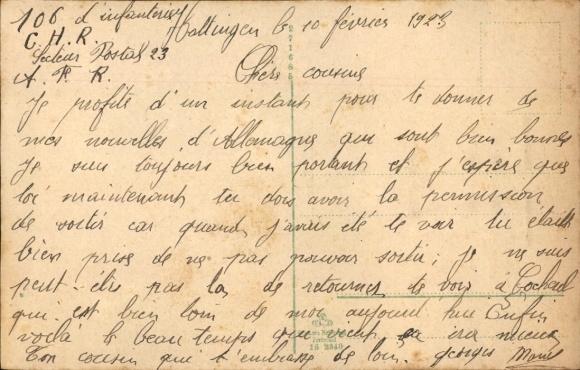 106 d'infanterie
Hattingen le 10 février 1923
C. H. R.
Secteur Postal 23
A. F. R.
Chère cousine
Je profite d'un instant pour te donner de
mes nouvelles d'Allemagne qui sont bien bonnes
Je suis toujours bien portant et j'espère que
toi maintenant tu dois avoir la permission
de sortir car quand j'avais été te voir tu étais
bien prise de ne pas pouvoir sortir; je ne suis
peut-être pas las de retourner te voir à
qui est bien loin de moi aujourd'hui Enfin
voilà le beau temps qui vient ça ira mieux
Ton cousin qui t'embrasse de loin. Georges
271685
16 2340